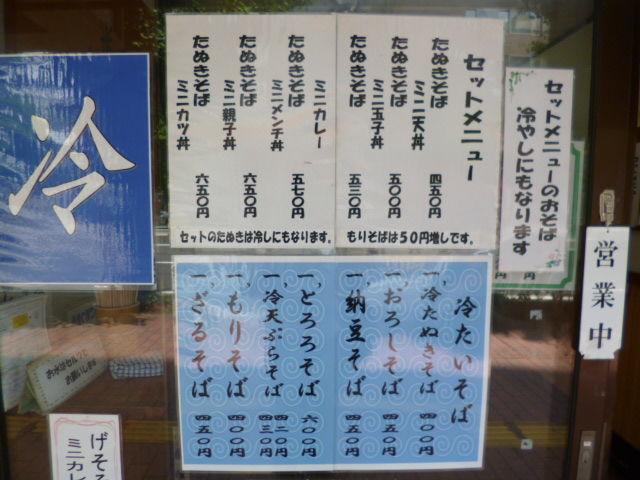 冷
セットメニュー
たぬきそば
ミニ天丼
四五〇円
たぬきそば
ミニ玉子丼
五〇〇円
たぬきそば
五三〇円
ミニカレー
たぬきそば
ミニメンチ丼
五七〇円
たぬきそば
ミニ親子丼
六五〇円
たぬきそば
ミニカツ丼
六五〇円
もりそばは50円増しです。
セットのたぬきは冷しにもなります。
セットメニューのおそば
冷やしにもなります
営業中
冷たいそば
一、冷たぬきそば 四〇〇円
一、おろしそば 四五〇円
一、納豆そば 四五〇円
一、とろろそば 六〇〇円
一、冷天ぷらそば 四二〇円
四三〇円
一、もりそば 四〇〇円
一、ざるそば 四五〇円
お水はセルフにて
お願いします
げそ
ミニカレ